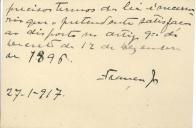 precisos termos da lei é neces-
rio que o pretendente satisfaça
ao disposto no artigo 9º do
decreto de 12 de Dezembro
de 1896.
27-1-917.